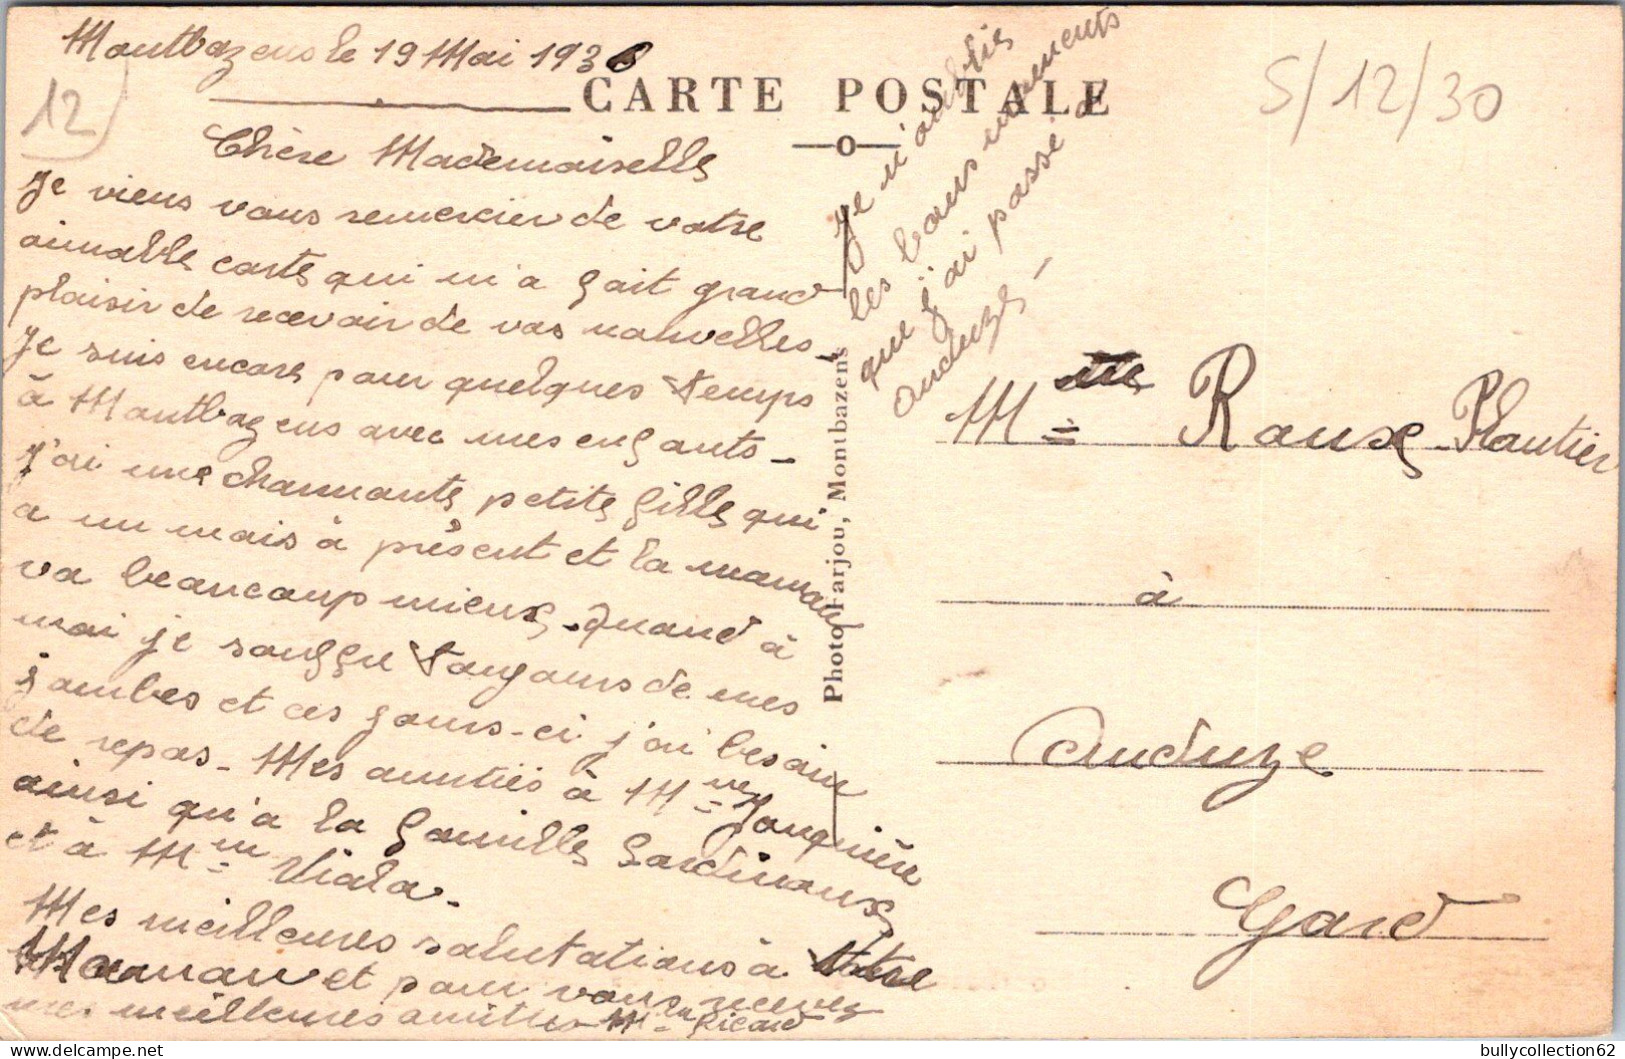 Montbazens le 19 Mai 1936
12
CARTE POSTALE
S/12/30
Chère Mademoiselle
Je viens vous remercier de votre
aimable carte qui m'a fait grand
plaisir de recevoir de vos nouvelles -
Je suis encore pour quelques temps
à Montbazens avec mes enfants -
J'ai une charmante petite fille qui
a un mois à présent et la maman
va beaucoup mieux. Quand à
moi je souffre toujours de mes
jambes et ces jours-ci j'ai besoin
de repos - Mes amitiés à Mme Jonquière
ainsi qu'à la famille Gardinoux
et à Mme Viala -
Mes meilleures salutations à Votre
Maman et pour vous recevez
mes meilleures amitiés Mme Ricard
Je n'oublie
les bons moments
que j'ai passé à
Anduze -
Photo Farjou, Montbazens
Mlle Roux Plantier
à
Anduze
Gard
bullycollection62